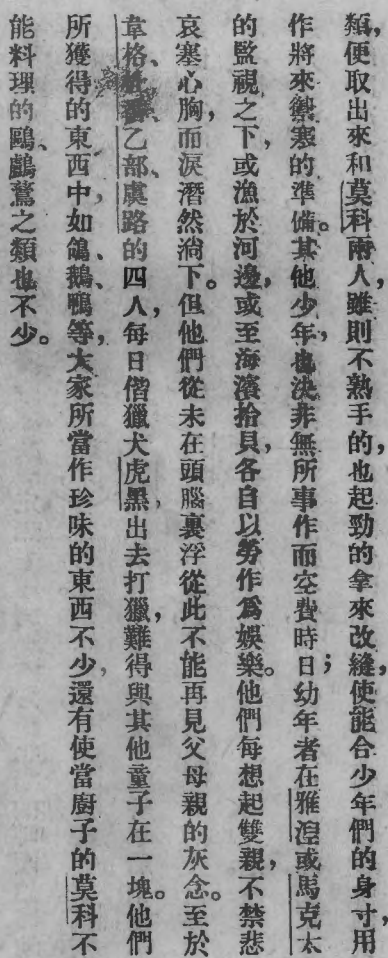 類，便取出來和莫科兩人，雖則不熟手的，也起勁的拿來改縫，使能合少年們的身寸，用
作將來禦寒的準備。其他少年，也決非無所事作而空費時日；幼年者在雅涅或馬克太
的監視之下，或漁於河邊，或至海濱拾貝，各自以勞作爲娛樂。他們每想起雙親，不禁悲
哀塞心胸，而淚潸然淌下。但他們從未在頭腦裏浮從此不能再見父母親的灰念。至於
韋格、乙部、虞路的四人，每日偕獵犬虎黑，出去打獵，難得與其他童子在一塊。他們
所獲得的東西中，如鴿、鵝、鴨等，大家所當作珍味的東西不少，還有使當廚子的莫科不
能料理的鷗、鸕鶿之類也不少。